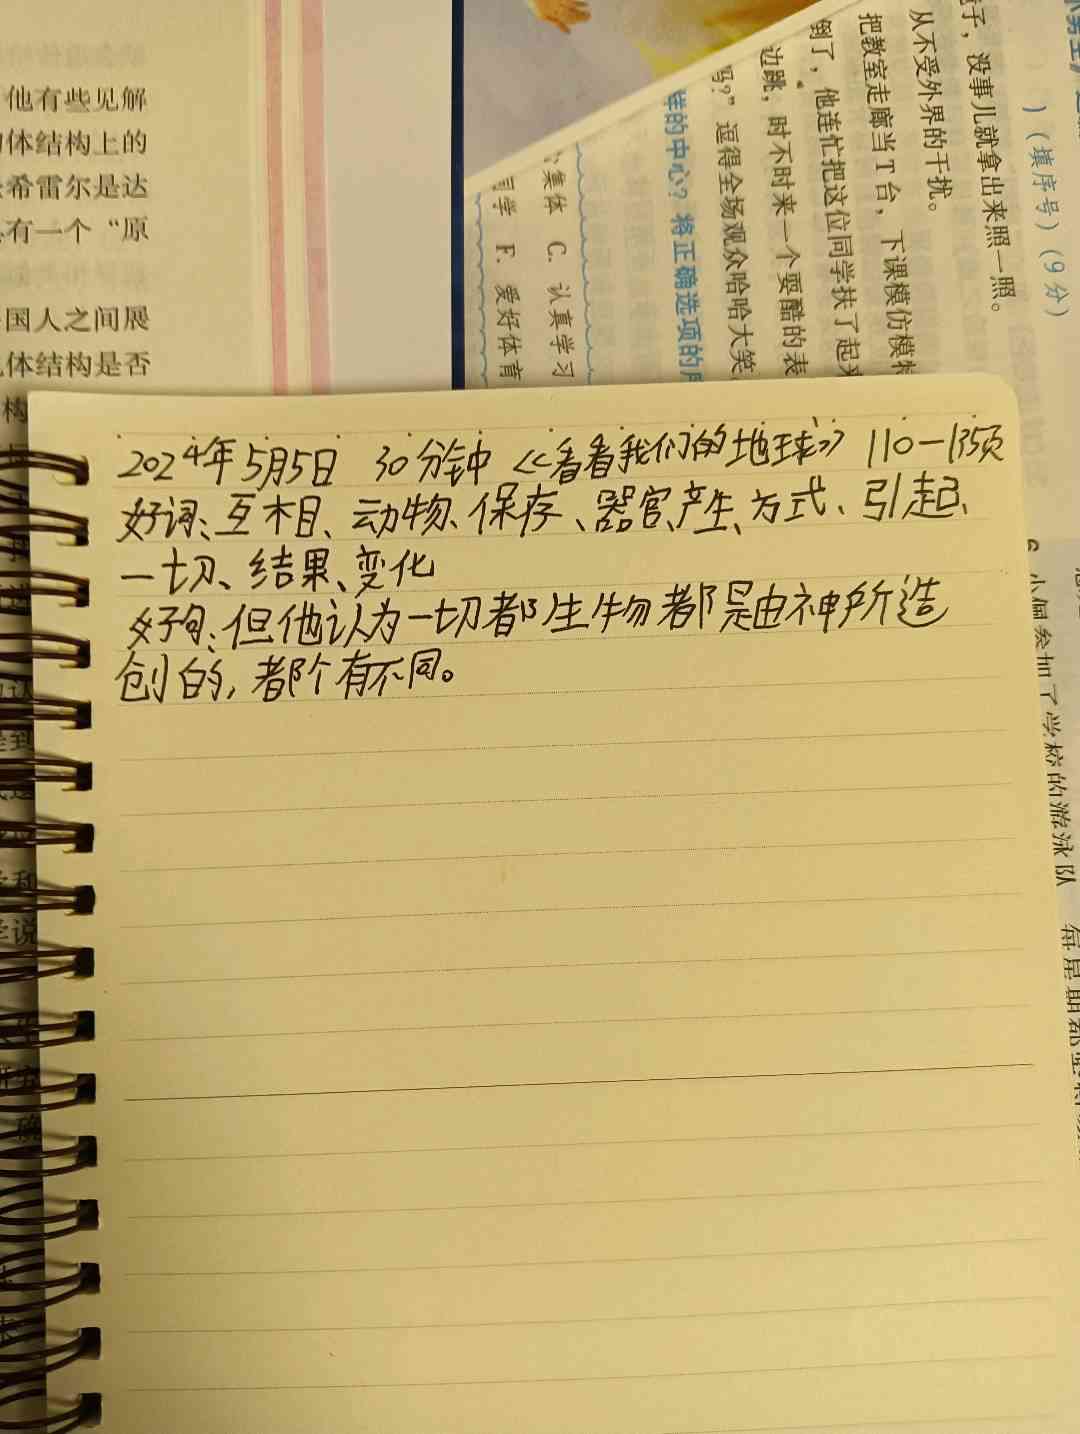 他有些见解
体结构上的
希雷尔是达
有一个“原
国人之间展
体结构是否
构
子，没事儿就拿出来照一照。
）（填序号）（9分）
从不受外界的干扰。
把教室走廊当T台，下课模仿模特
倒了，他连忙把这位同学扶了起来
边跳，时不时来一个耍酷的表
吗？”逗得全场观众哈哈大笑
样的中心？将正确选项的序
集体 C. 认真学习
同学 F. 爱好体育
2024年5月5日 30分钟 《看看我们的地球》 110-135页
好词：互相、动物、保存、器官、产生、方式、引起、
一切、结果、变化
好句：但他认为一切都生物都是由神所造
创的，都个有不同。
6 小佩参加了学校的游泳队